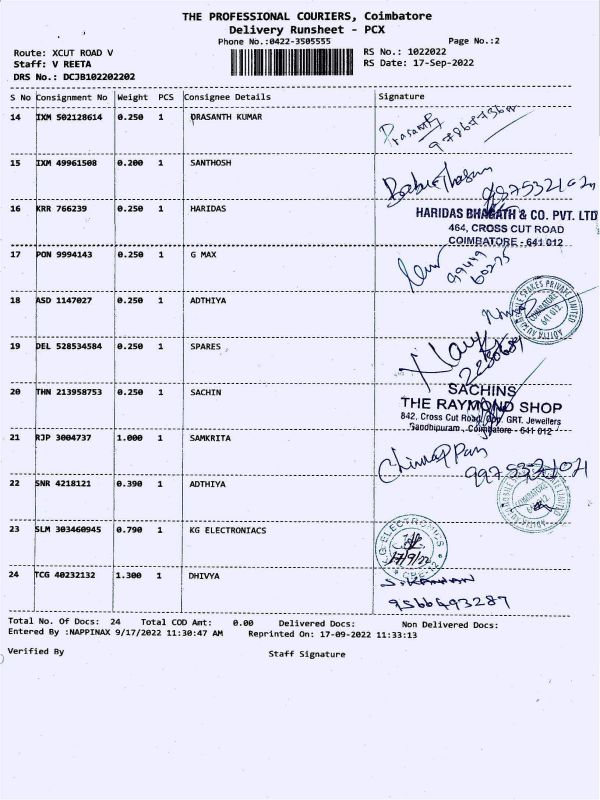 THE PROFESSIONAL COURIERS, Coimbatore
Delivery Runsheet - PCX
Phone No.:0422-3505555
Page No.:2
Route: XCUT ROAD V
RS No.: 1022022
Staff: V REETA
RS Date: 17-Sep-2022
DRS No.: DCJB102202202
S No Consignment No Weight PCS Consignee Details Signature
14 IXM 502128614 0.250 1 PRASANTH KUMAR
Prasanth
15 IXM 49961508 0.200 1 SANTHOSH
16 KRR 766239 0.250 1 HARIDAS
HARIDAS BHAGATH & CO. PVT. LTD
464, CROSS CUT ROAD
COIMBATORE - 641 012
17 PON 9994143 0.250 1 G MAX
18 ASD 1147027 0.250 1 ADTHIYA
19 DEL 528534584 0.250 1 SPARES
20 THN 213958753 0.250 1 SACHIN
SACHINS
THE RAYMOND SHOP
842, Cross Cut Road, Opp. GRT. Jewellers
Gandhipuram, Coimbatore - 641 012
21 RJP 3004737 1.000 1 SAMKRITA
22 SNR 4218121 0.390 1 ADTHIYA
23 SLM 303460945 0.790 1 KG ELECTRONIACS
17/9/22
24 TCG 40232132 1.300 1 DHIVYA
9566493287
Total No. Of Docs: 24 Total COD Amt: 0.00 Delivered Docs: Non Delivered Docs:
Entered By :NAPPINAX 9/17/2022 11:30:47 AM Reprinted On: 17-09-2022 11:33:13
Verified By
Staff Signature